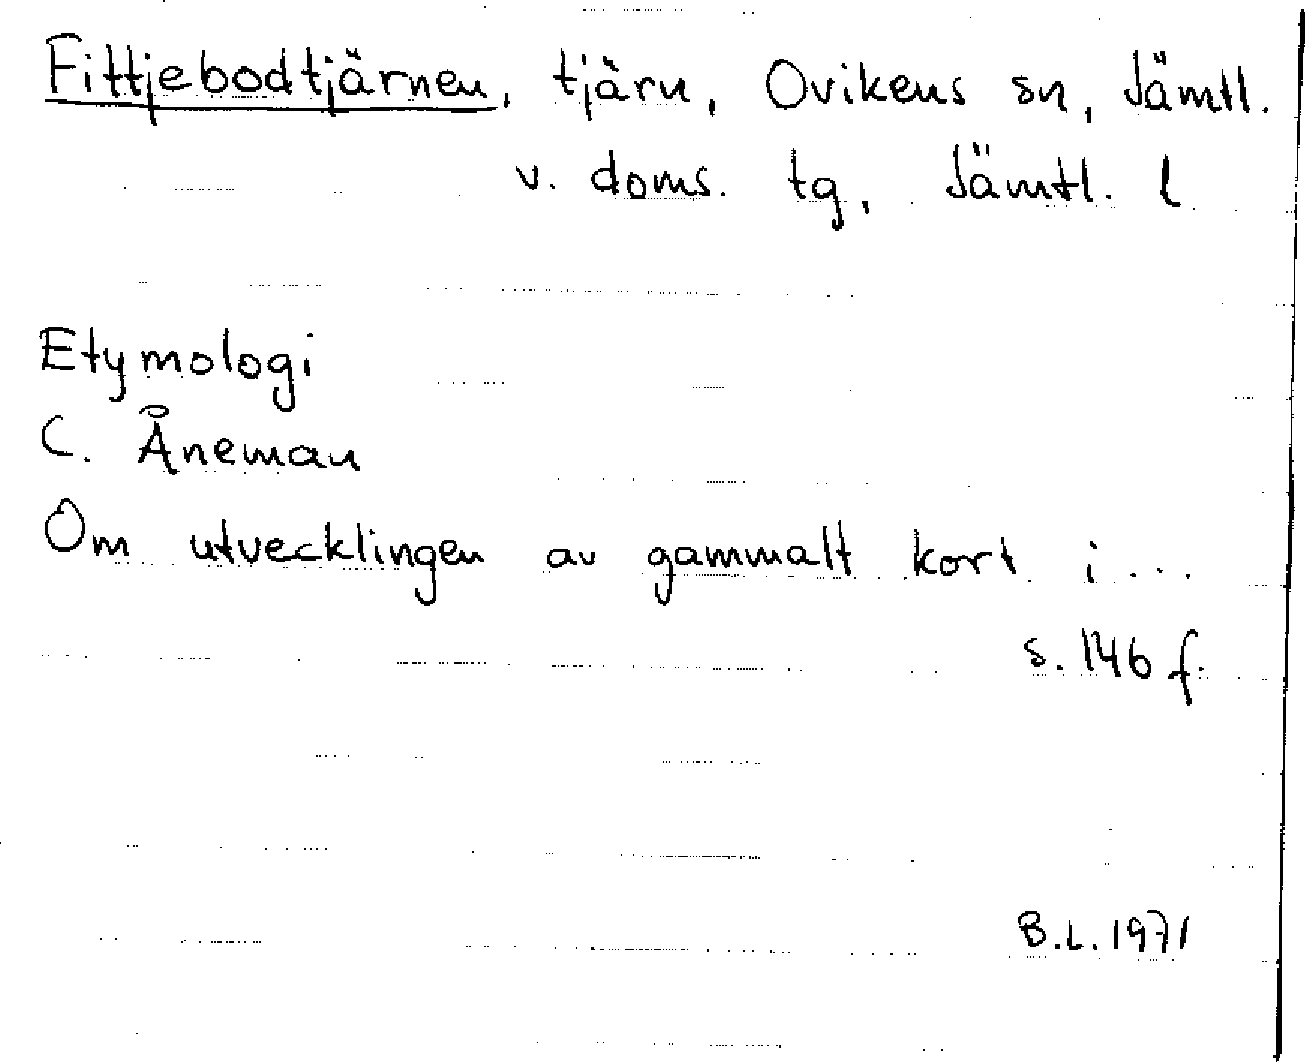 Fittjebodtjärnen, tjärn, Ovikens sn, Jämtl.
v. doms. tg, Jämtl. l
Etymologi
C. Åneman
Om utvecklingen av gammalt kort i...
s. 146 f.
B.L. 1971